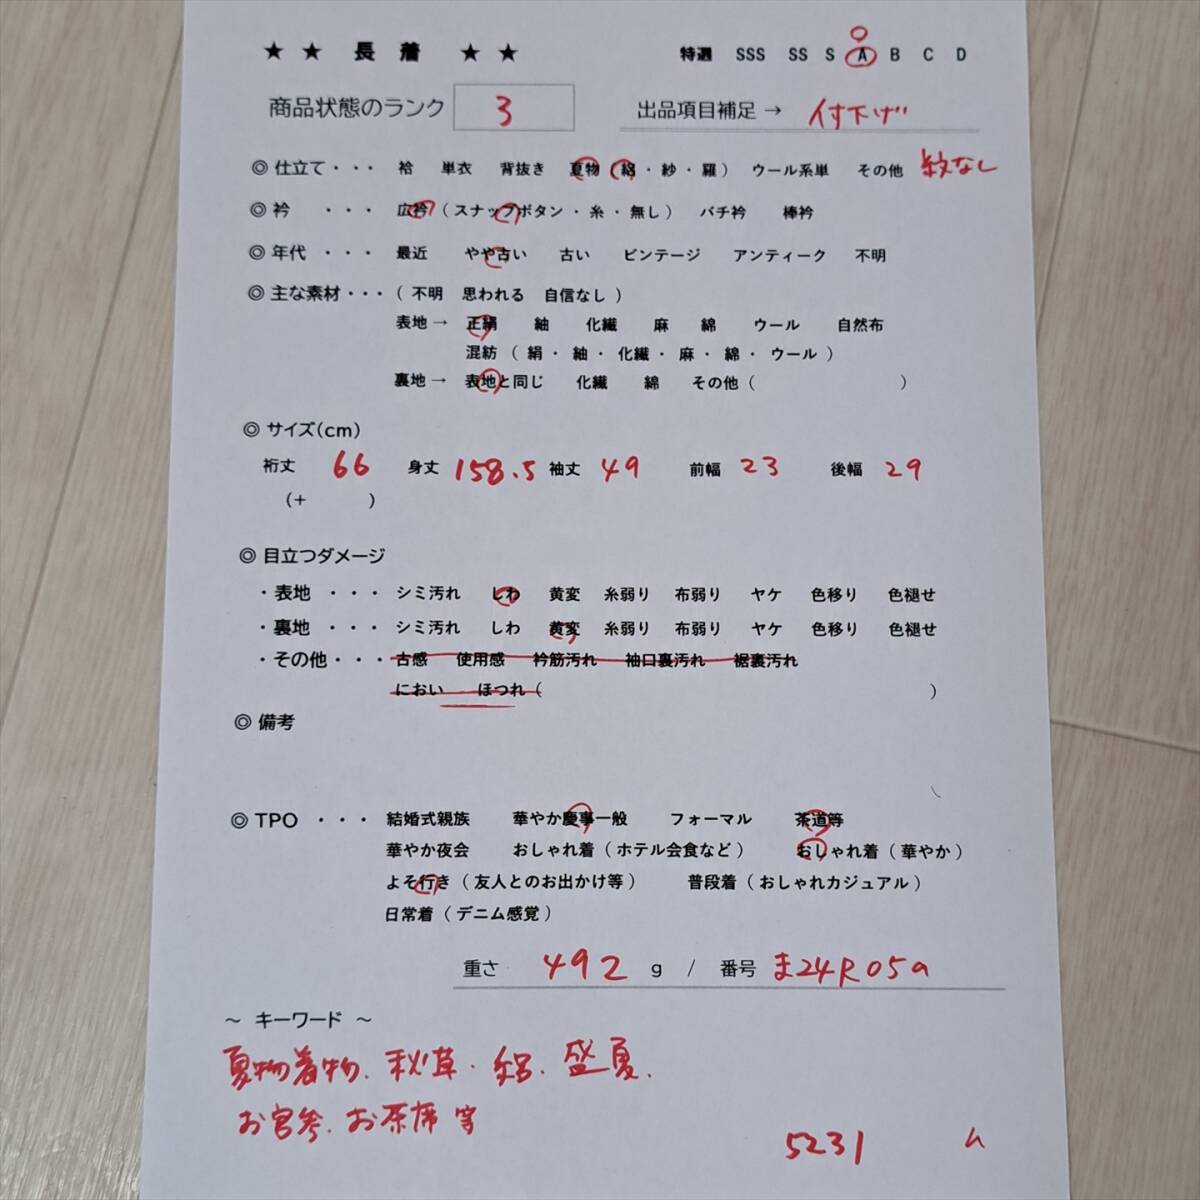 ★ ★ 長 着 ★ ★ 特選 SSS SS S A B C D
商品状態のランク 3 出品項目補足 → 付下げ
◎ 仕立て・・・ 袷 単衣 背抜き 夏物 ( 絽 ・ 紗 ・ 羅 ) ウール系単 その他 紋なし
◎ 衿 ・・・ 広衿 ( スナップボタン ・ 糸 ・ 無し ) バチ衿 棒衿
◎ 年代 ・・・ 最近 やや古い 古い ビンテージ アンティーク 不明
◎ 主な素材・・・ ( 不明 思われる 自信なし )
表地 → 正絹 紬 化繊 麻 綿 ウール 自然布
混紡 ( 絹 ・ 紬 ・ 化繊 ・ 麻 ・ 綿 ・ ウール )
裏地 → 表地と同じ 化繊 綿 その他 ( )
◎ サイズ(cm)
裄丈 66 身丈 158.5 袖丈 49 前幅 23 後幅 29
(+ )
◎ 目立つダメージ
・表地 ・・・ シミ汚れ しわ 黄変 糸弱り 布弱り ヤケ 色移り 色褪せ
・裏地 ・・・ シミ汚れ しわ 黄変 糸弱り 布弱り ヤケ 色移り 色褪せ
・その他・・・ 古感 使用感 衿筋汚れ 袖口裏汚れ 裾裏汚れ
におい ほつれ ( )
◎ 備考
◎ TPO ・・・ 結婚式親族 華やか慶事一般 フォーマル 茶道等
華やか夜会 おしゃれ着 ( ホテル会食など ) おしゃれ着 ( 華やか )
よそ行き ( 友人とのお出かけ等 ) 普段着 ( おしゃれカジュアル )
日常着 ( デニム感覚 )
重さ 492 g / 番号 ま24R05a
～ キーワード ～
夏物着物、秋草・絽、盛夏、
お宮参、お茶席 等
5231